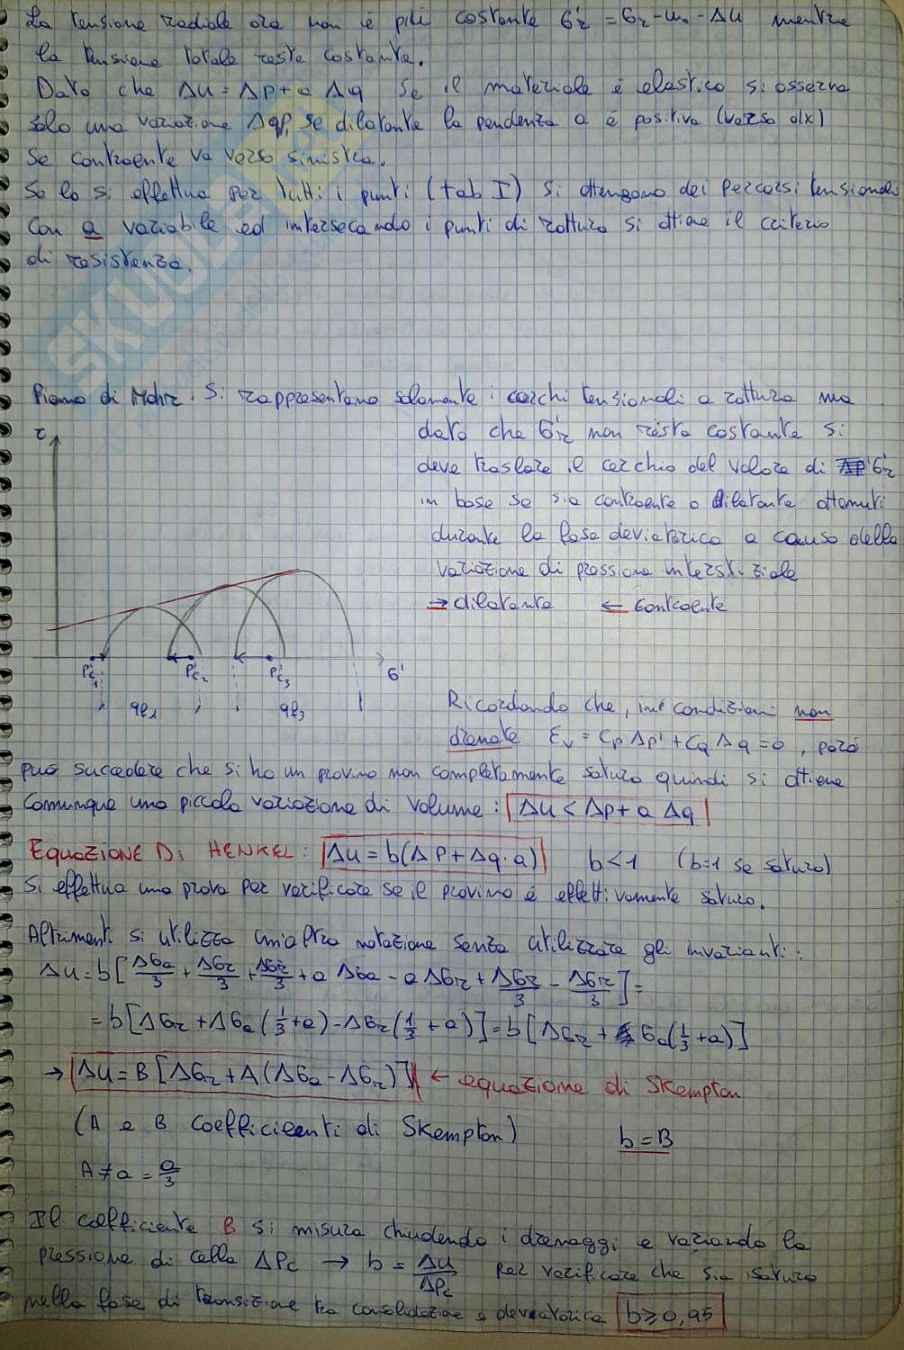 La tensione radiale ora non è più costante σ'r = σr - u0 - Δu mentre
la tensione totale resta costante.
Dato che Δu = Δp + a Δq se il materiale è elastico si osserva
solo una variazione Δq, se dilatante la pendenza a è positiva (verso dx)
Se contraente va verso sinistra.
Se lo si effettua per tutti i punti (tab I) si ottengono dei percorsi tensionali
con a variabile ed intersecando i punti di rottura si ottiene il criterio
di resistenza.
SKUOLA
Piano di Mohr: Si rappresentano solamente i cerchi tensionali a rottura ma
τ
dato che σ'r non resta costante si
deve traslare il cerchio del valore di σ'r
in base se sia contraente o dilatante ottenuti
durante la fase deviatorica a causa della
variazione di pressione interstiziale
→ dilatante ← contraente
P'c1 P'c2 P'c3 σ'
qf1 qf3
Ricordando che, in condizioni non
drenate εv = Cp Δp' + Cq Δq = 0, però
può succedere che si ha un provino non completamente saturo quindi si ottiene
comunque una piccola variazione di volume: Δu < Δp + a Δq
EQUAZIONE DI HENKEL: Δu = b(Δp + Δq·a) b<1 (b=1 se saturo)
Si effettua una prova per verificare se il provino è effettivamente saturo.
Altrimenti si utilizza un'altra notazione senza utilizzare gli invarianti:
Δu = b[Δσa/3 + Δσr/3 + Δσr/3 + a Δσa - a Δσr + Δσr/3 - Δσr/3] =
= b[Δσr + Δσa(1/3 + a) - Δσr(1/3 + a)] = b[Δσr + σa(1/3 + a)]
→ Δu = B[Δσr + A(Δσa - Δσr)] ← equazione di Skempton
(A e B coefficienti di Skempton) b = B
A ≠ a = a/3
Il coefficiente B si misura chiudendo i drenaggi e variando la
pressione di cella ΔPc → b = Δu/ΔPc per verificare che sia saturo
nella fase di transizione tra consolidazione e deviatorica b ≥ 0,95